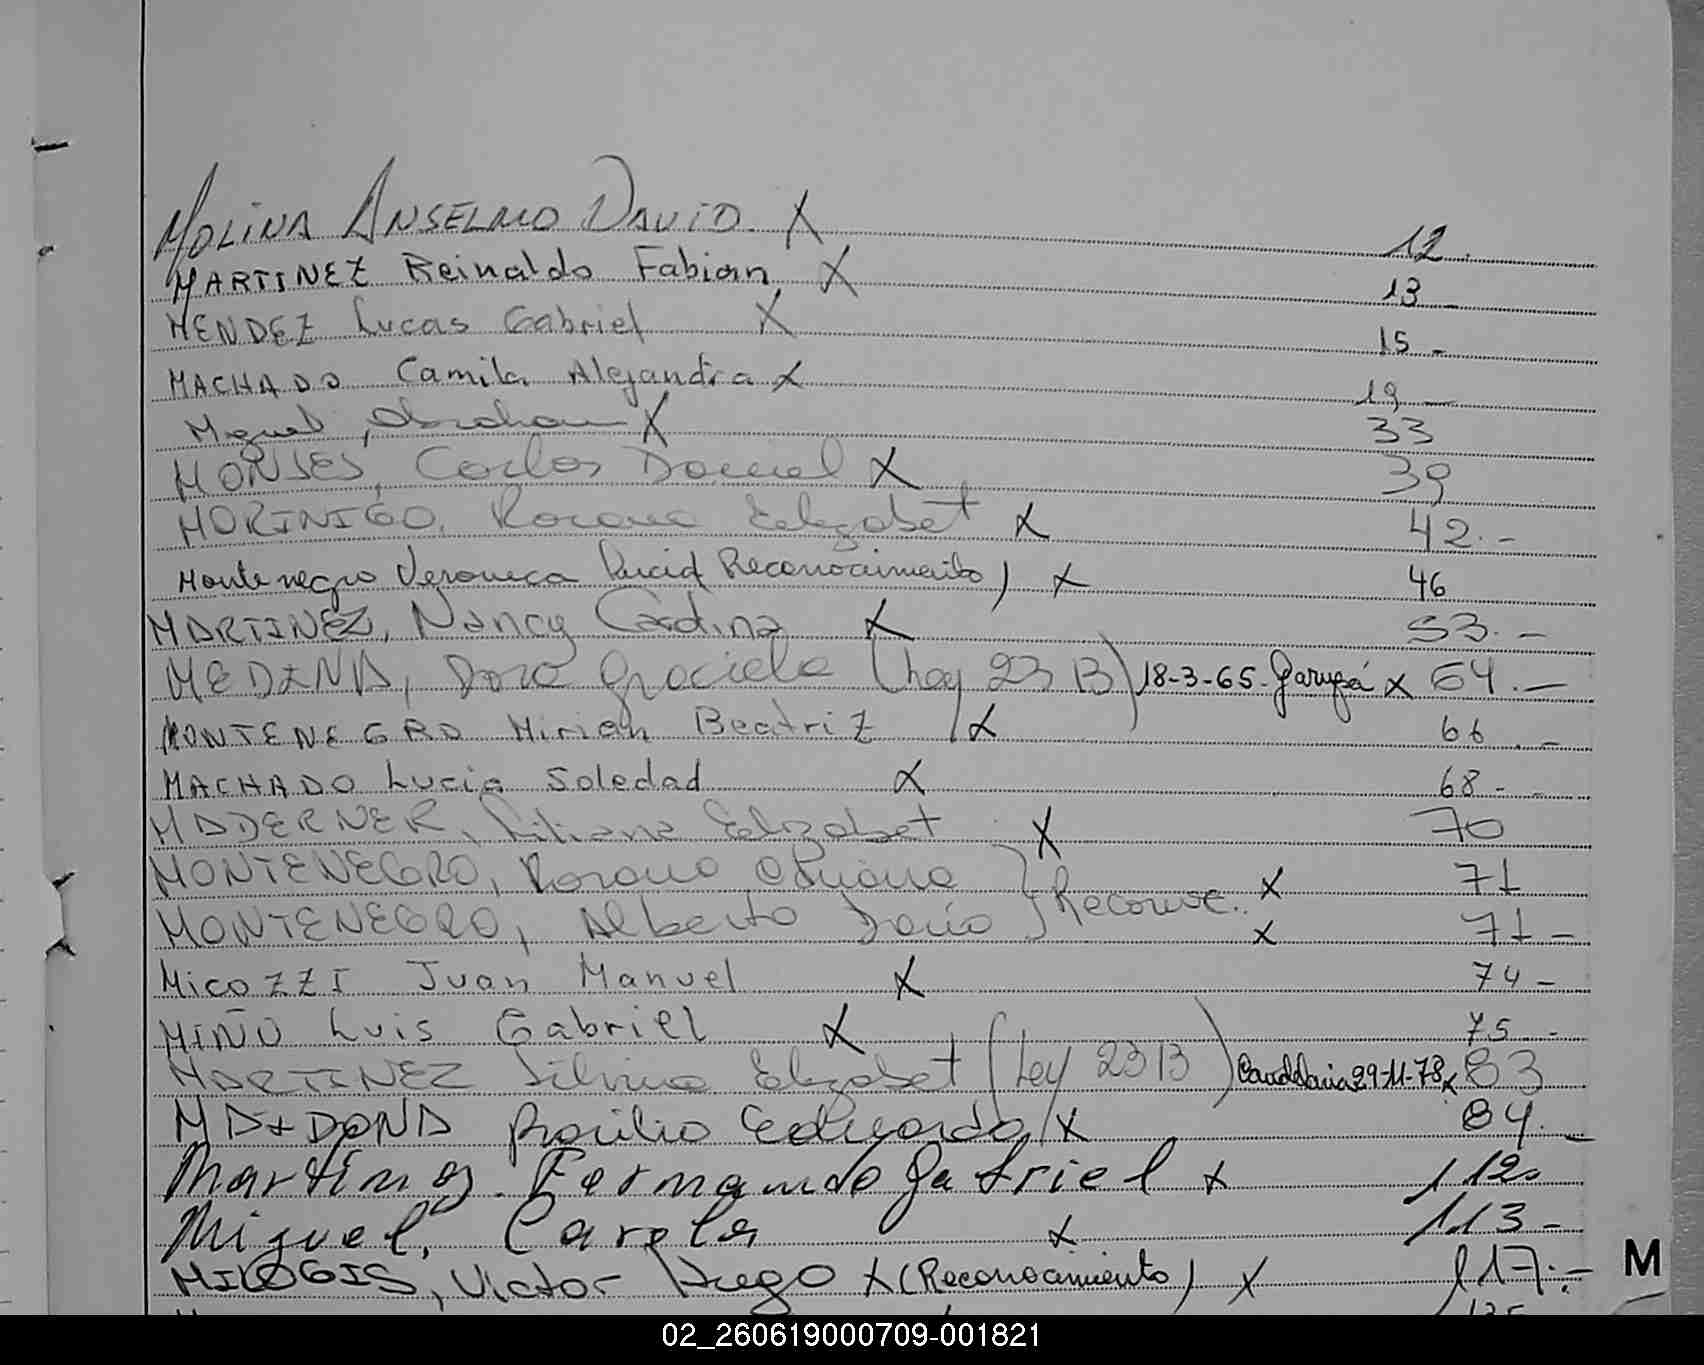 MOLINA ANSELMO DAVID. X 12.
MARTINEZ Reinaldo Fabian X 13 -
MENDEZ Lucas Gabriel X 15 -
MACHADO Camila Alejandra X 19 -
Miguel, Abraham X 33
MONJES, Carlos Daniel X 39
MORINIGO, Rosana Elizabet X 42.-
Montenegro Veronica Reconocimiento) X 46
MARTINEZ, Nancy X 53.-
MEDINA, Dora Graciela (Ley 23 13) 18-3-65. Garupá X 64.-
MONTENEGRO Mirian Beatriz X 66.-
MACHADO Lucia Soledad X 68--
MADERNER, Liliana Elizabet X 70
MONTENEGRO, Rosana X 71
MONTENEGRO, Alberto Dario } Reconoc. X 71-
MICOZZI Juan Manuel X 74-
MIÑO Luis Gabriel X 75.-
MARTINEZ Silvina Elizabet (Ley 2313) Candelaria 29-11-78 X 83
MAIDANA Eduardo X 84.-
Martinez. Fernando Gabriel X 112
Miguel, Carola X 113-
Victor Hugo X (Reconocimiento) X 117.-
M
02_260619000709-001821